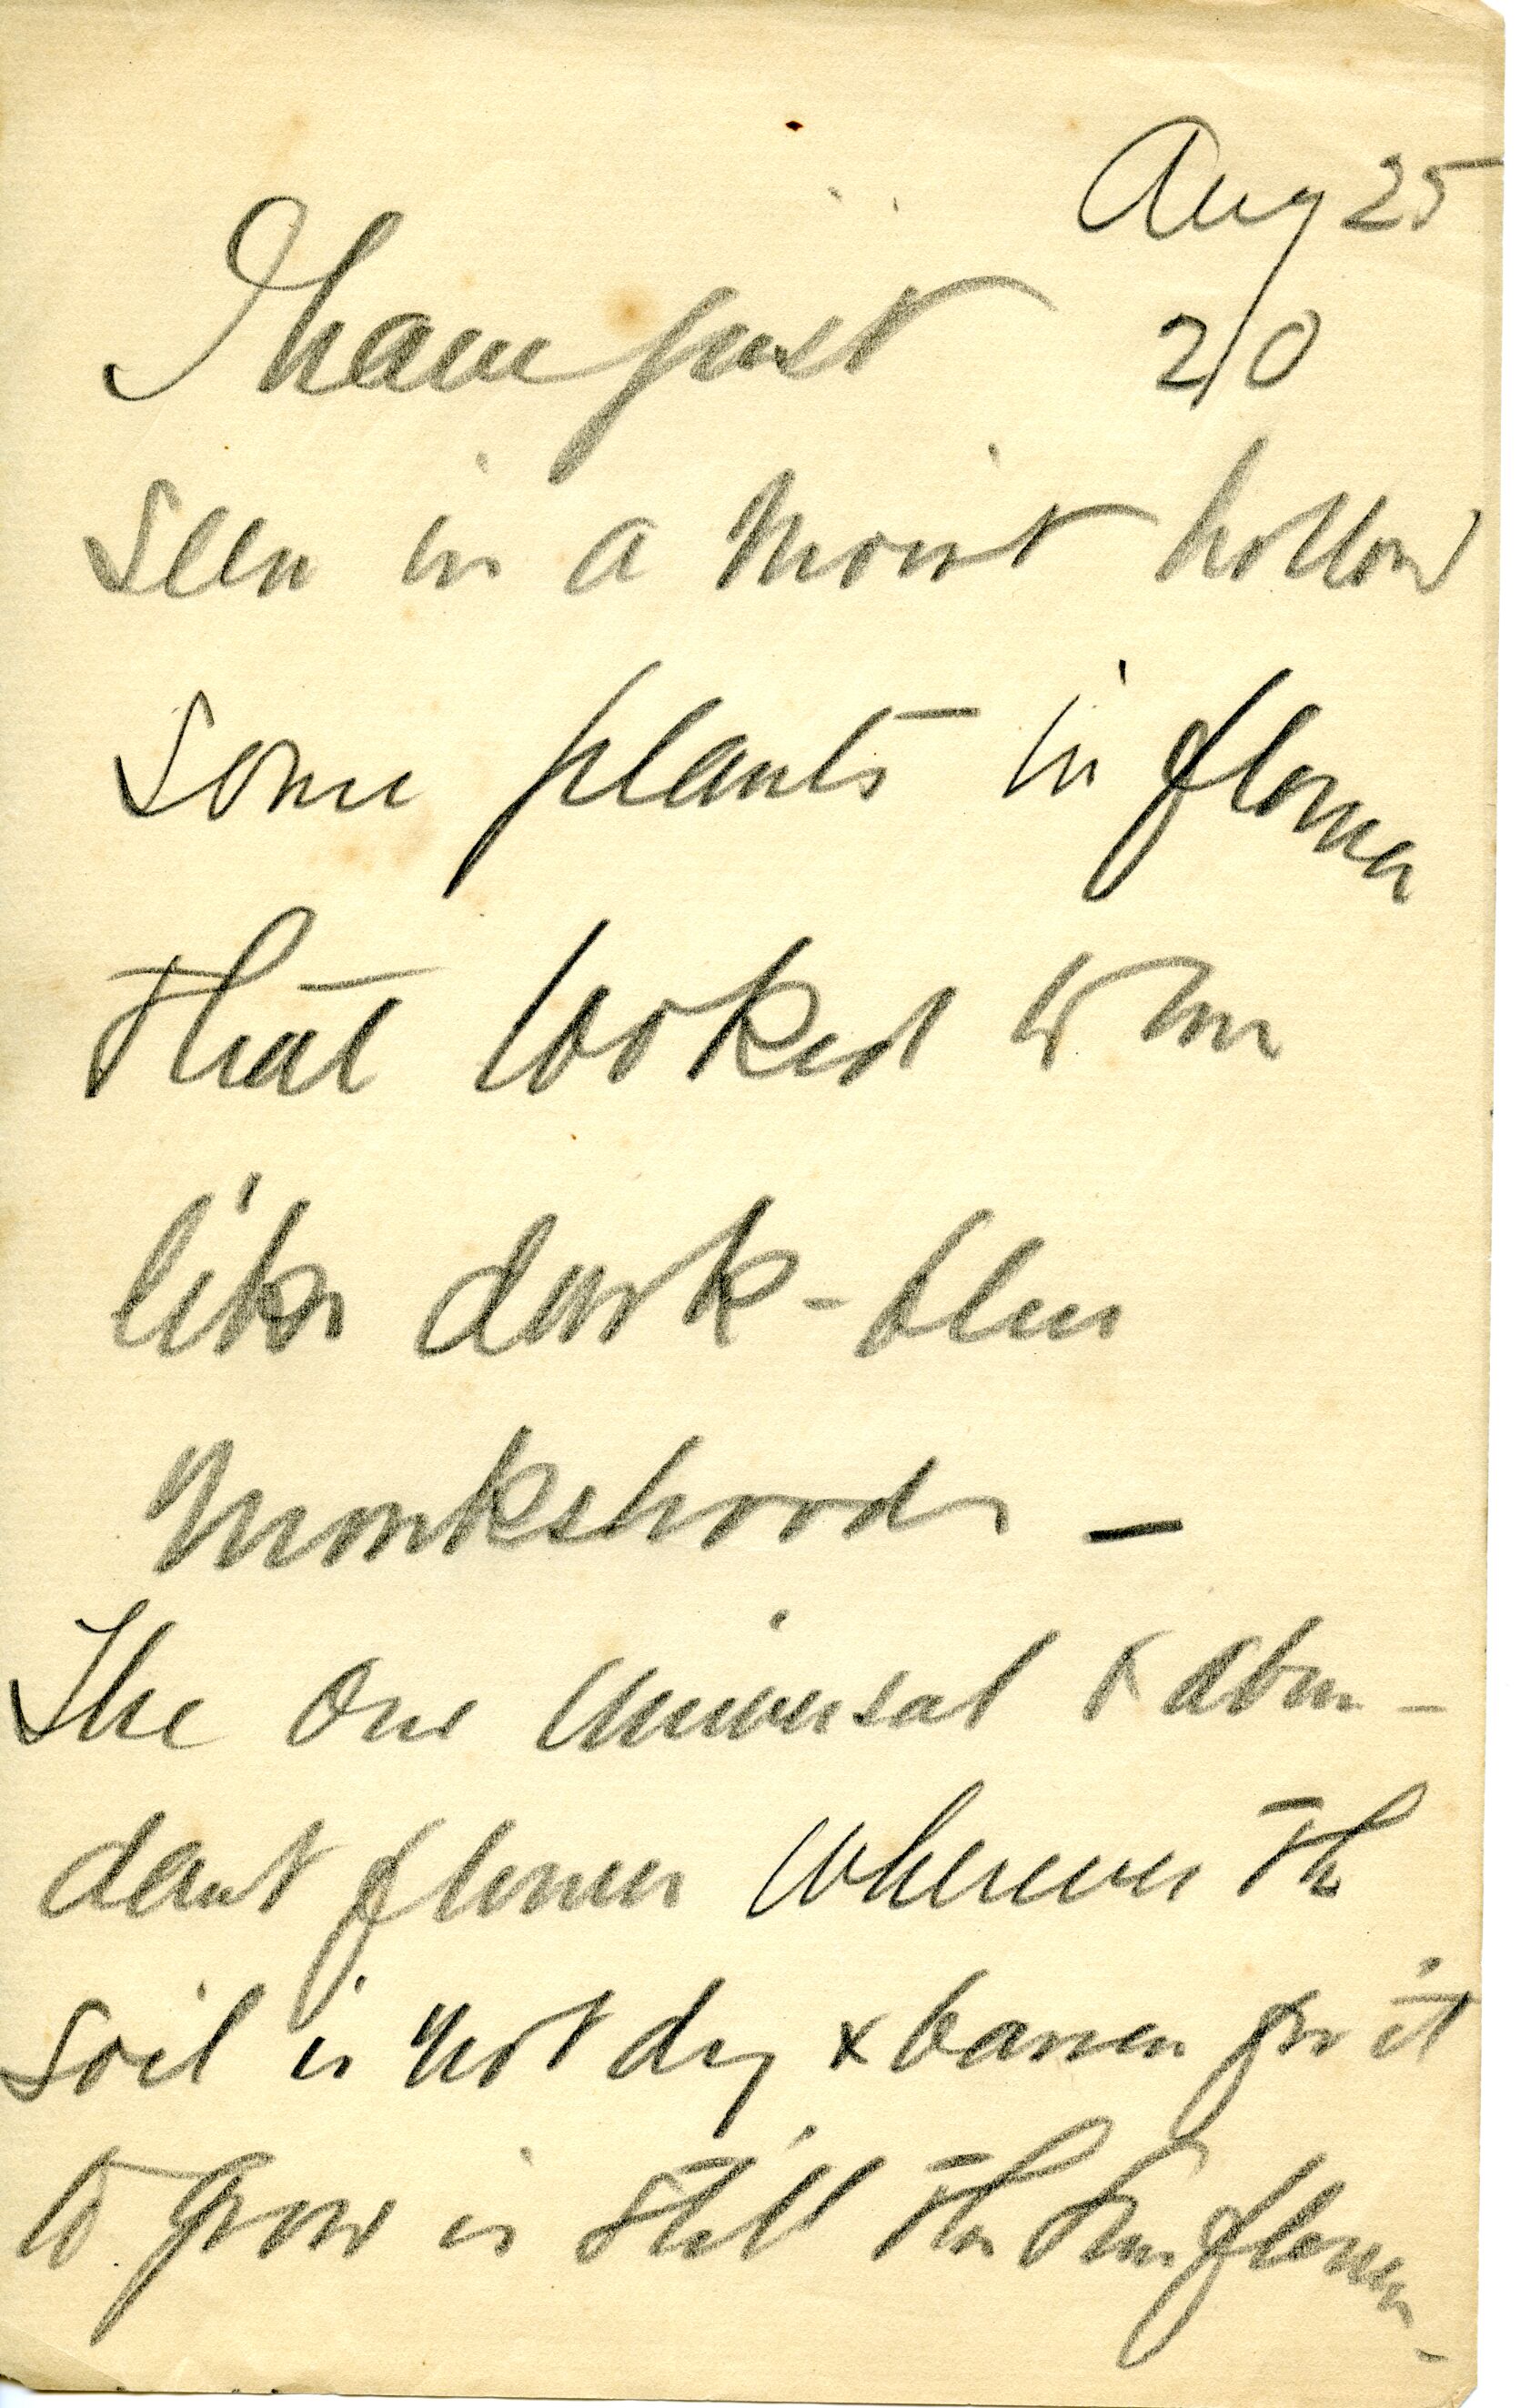 Aug 25
210
I have just
seen in a moist hollow
some plants in flower
that looked to me
like dark-blue
monkshood –
The one universal & abun-
dant flower wherever the
soil is not dry & barren for it
to grow is still the Sunflower –